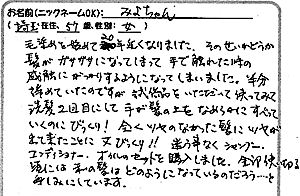 お名前(ニックネームOK): みよちゃん
(埼玉在住、57歳、性別: 女)
毛染めを始めて20年近くなりました。そのせいかどうか
髪がガサガサになってしまって手で触れた時の
感触にがっかりするようになってしまいました。半分
諦めていたのですが試供品をいただいて使ってみて
洗髪2回目にして手が髪の上をなめらかにすべって
いくのにびっくり! 全くツヤのなかった髪にツヤが
出て来たことに又びっくり!! 迷う事なくシャンプー、
コンディショナー、オイルのセットを購入しました。全部使い切る
頃には私の髪はどのようになっているのだろう…と
楽しみにしています。